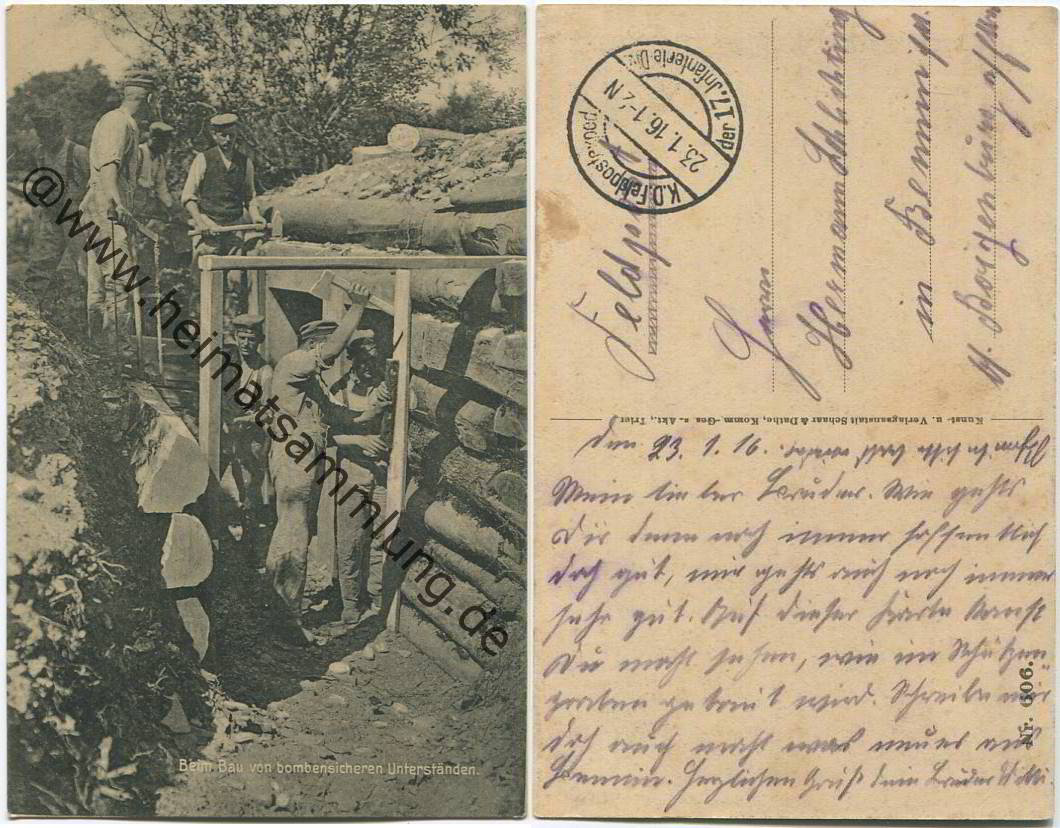 @www.heimatsammlung.de
Beim Bau von bombensicheren Unterständen.
K.D. Feldpostexped.
der 17. Infanterie-Div.
23.1.16. 1-2 N
Feldpost
Herrn
Hermann
in
Kunst- u. Verlagsanstalt Schaar & Dathe, Komm.-Ges. a. Akt., Trier.
Nr. 606.
Den 23. 1. 16.
Mein lieber Bruder. Wie gehts
Dir denn noch immer hoffentlich
doch gut, mir gehts auch noch immer
sehr gut. Auf dieser Karte kanst
Du mahl sehen, wie im Schützen
graben gebaut wird. Schreibe mir
doch auch mahl was neues aus
Herzlichen Gruß dein Bruder Willi.